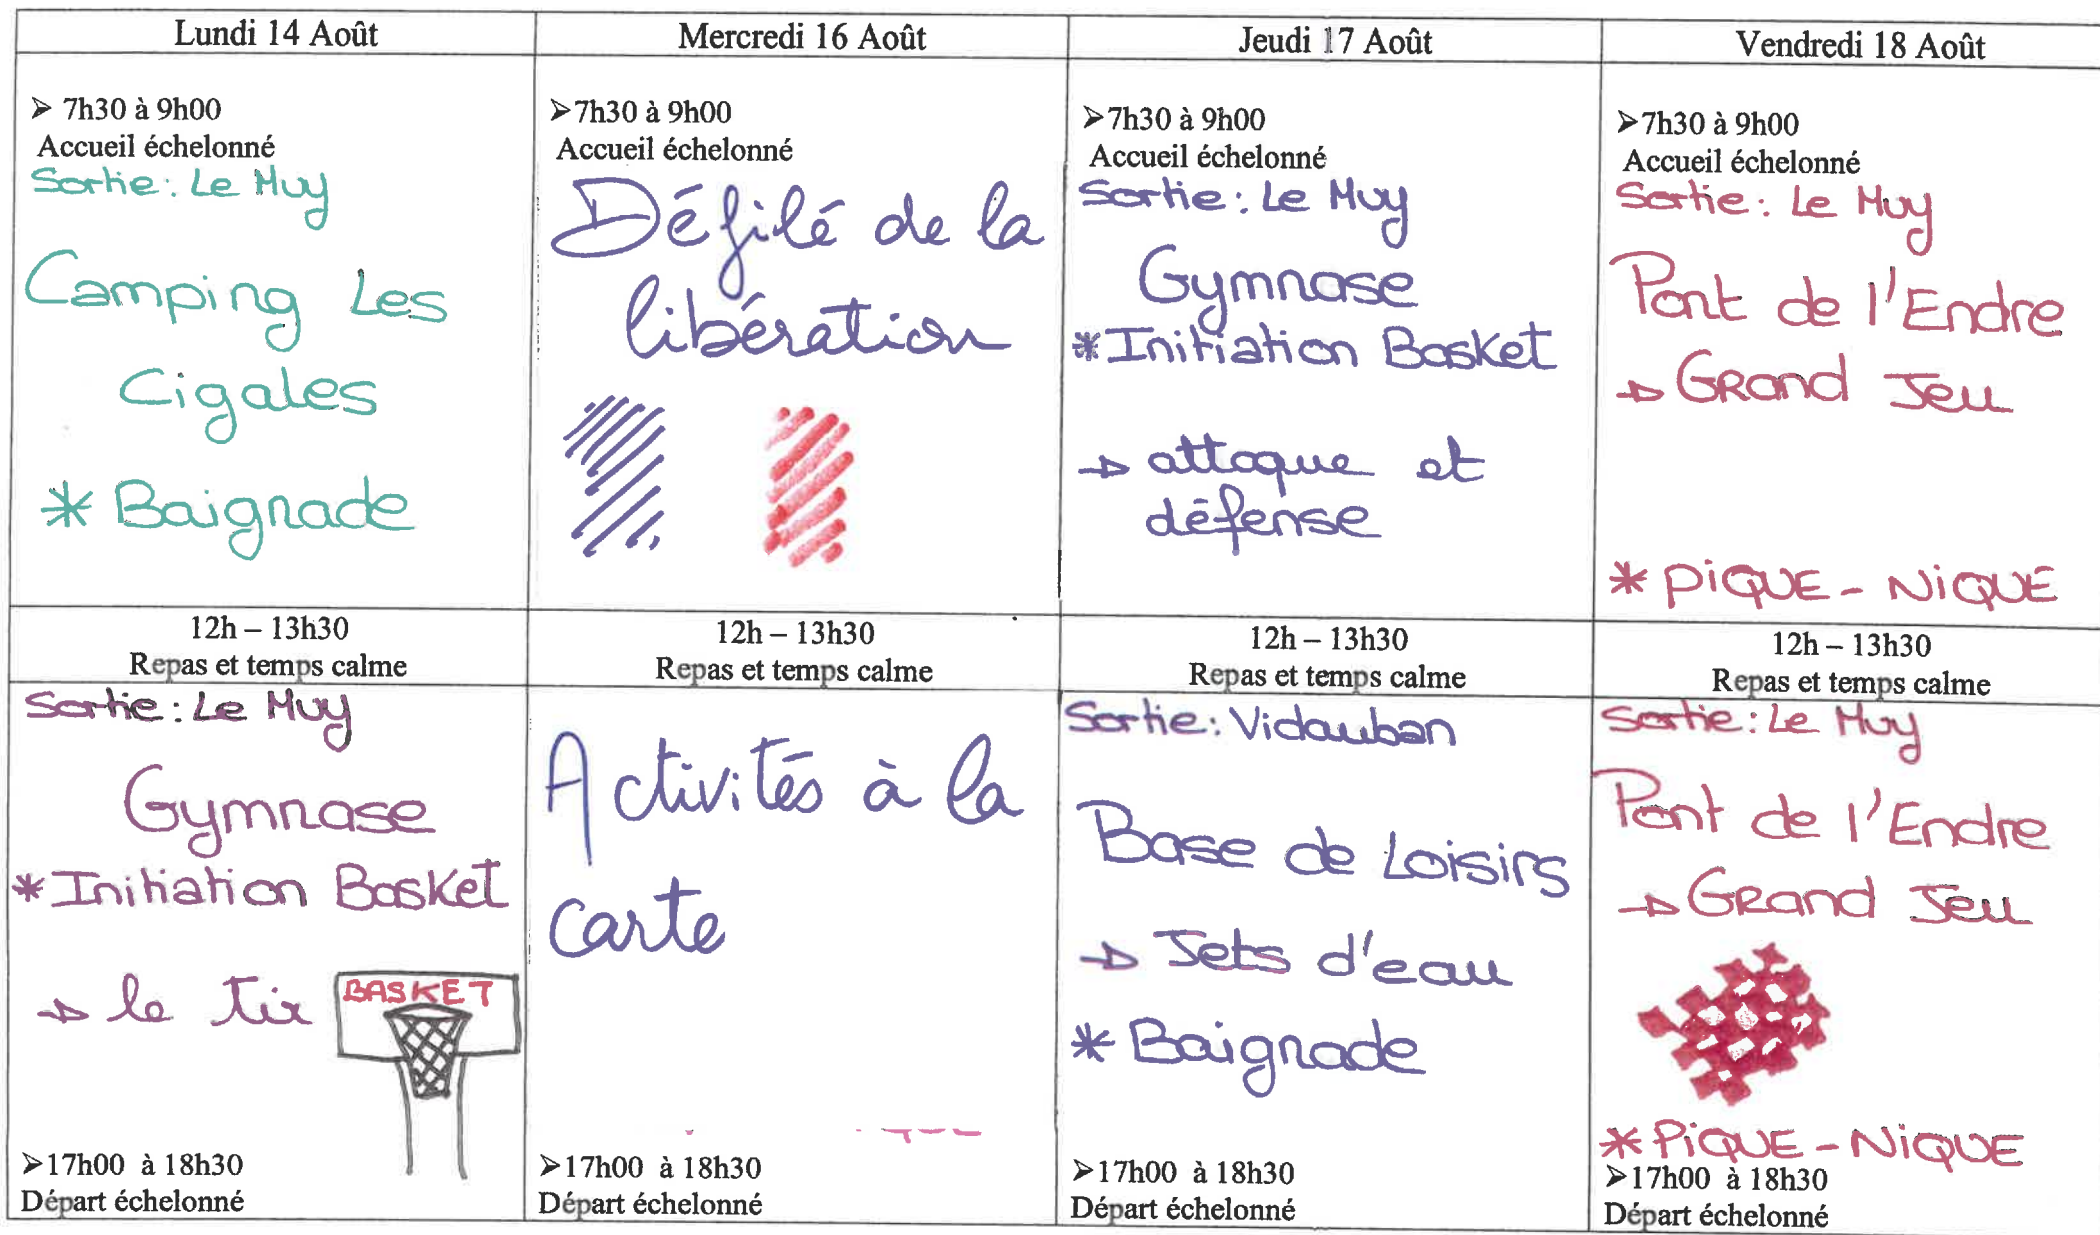 Lundi 14 Août
Mercredi 16 Août
Jeudi 17 Août
Vendredi 18 Août
➢ 7h30 à 9h00
Accueil échelonné
Sortie : Le Muy
Camping Les
Cigales
* Baignade
➢7h30 à 9h00
Accueil échelonné
Défilé de la
libération
➢7h30 à 9h00
Accueil échelonné
Sortie : Le Muy
Gymnase
* Initiation Basket
→ attaque et
défense
➢7h30 à 9h00
Accueil échelonné
Sortie : Le Muy
Pont de l'Endre
→ GRand Jeu
* PiQUE - NiQUE
12h – 13h30
Repas et temps calme
12h – 13h30
Repas et temps calme
12h – 13h30
Repas et temps calme
12h – 13h30
Repas et temps calme
Sortie : Le Muy
Gymnase
* Initiation Basket
→ le tir
BASKET
➢17h00 à 18h30
Départ échelonné
Activités à la
carte
➢17h00 à 18h30
Départ échelonné
Sortie : Vidauban
Base de Loisirs
→ Jets d'eau
* Baignade
➢17h00 à 18h30
Départ échelonné
Sortie : Le Muy
Pont de l'Endre
→ GRand Jeu
* PiQUE - NiQUE
➢17h00 à 18h30
Départ échelonné